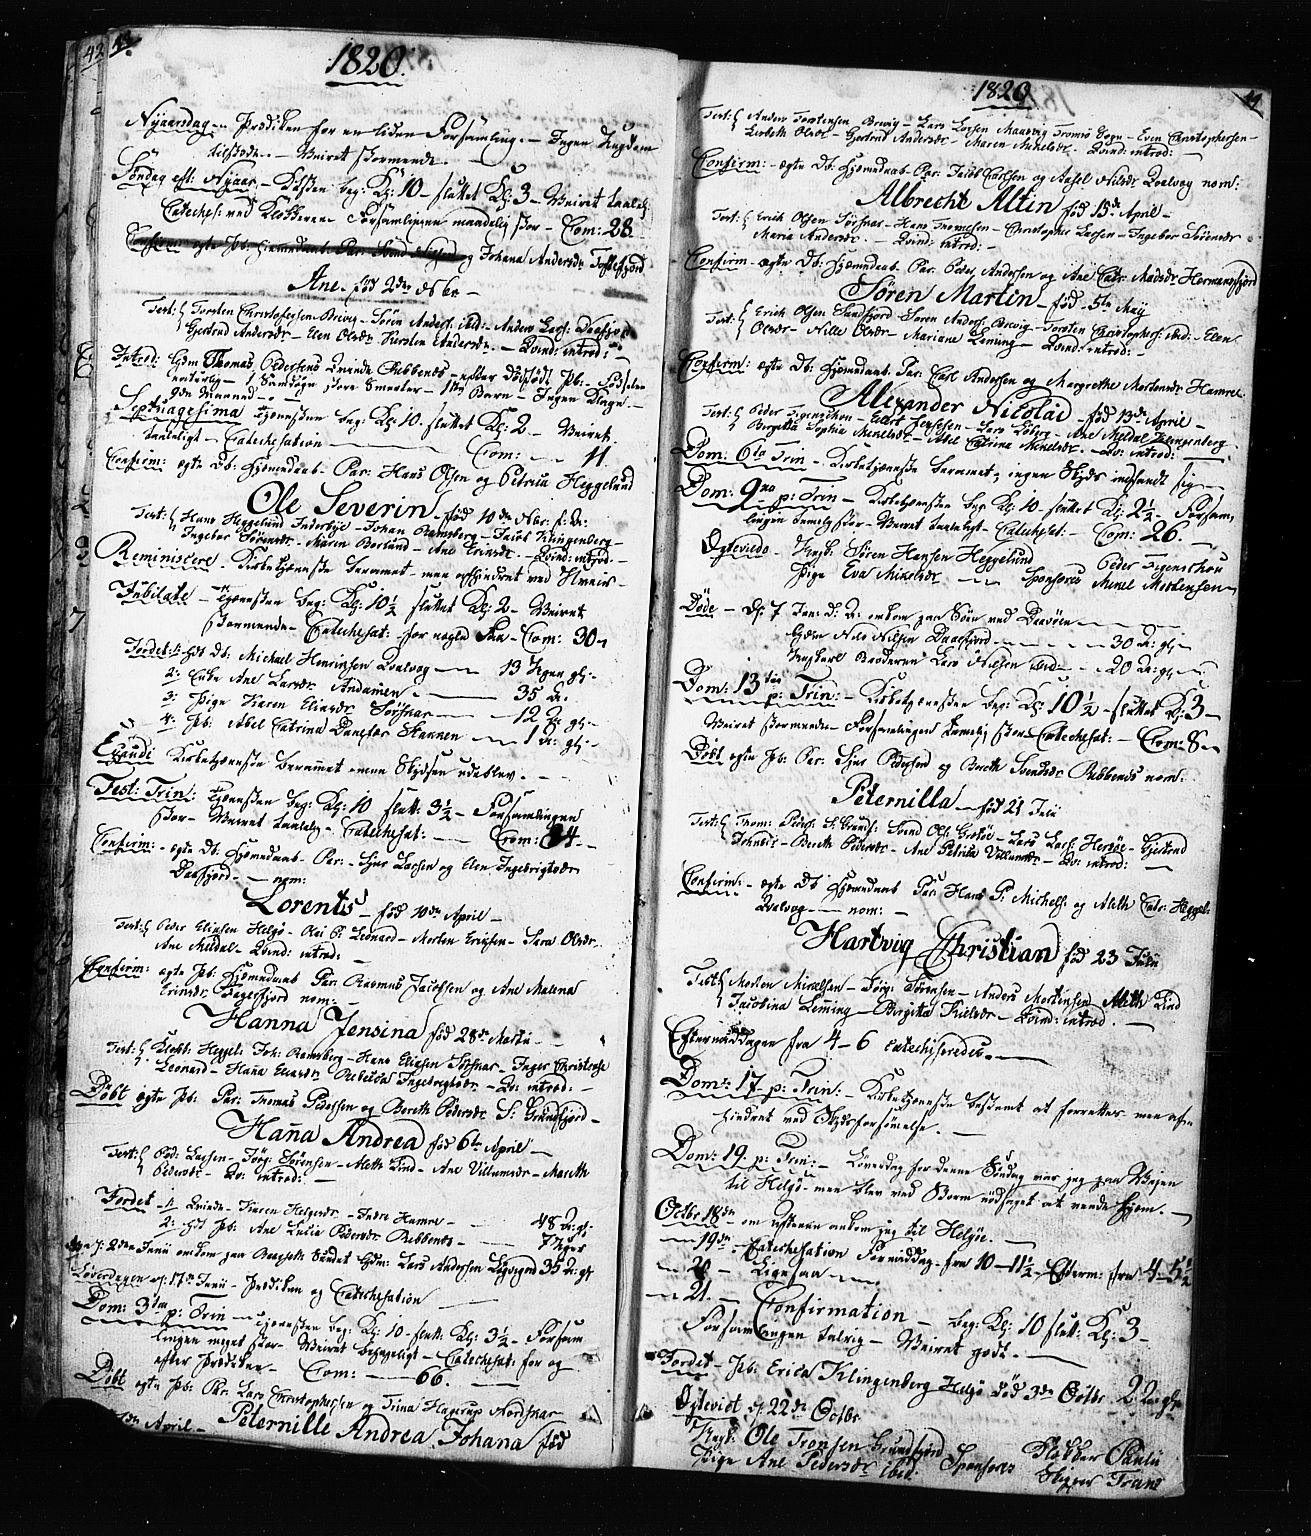 42 43
1820.
Nyaarsdag - Prædiken for en liden Forsamling. - Ingen Ungdom
tilstæde. - Veiret stormende.
Søndag eft: Nyaar - Tjæsten beg: Kl: 10 - sluttet Kl: 3 - Veiret taaleligt
Cateches: ved Klokkeren - Forsamlingen maadelig stor - Com: 28
Confirm: ægte Pb: Hjemdøbt Par: og Johana Andersdr
Ane - fød 2den Xbr -
Test: Torsten Christophersen Brevig - Sören Anders: ibid: - Anders Lars:
Gjertrud Andersdr - Elen Olsdr Kirsten Andersdr. - Qvind: introd: -
Introd: Gdm Thomas Pedersens Qvinde Ribbenes - efter dødfødt Pb: - Fødselen
naturlig - Smerter - Barn - Ingen
Maaned -
Septuagesima Tjenesten beg: Kl: 10. sluttet Kl: 2 - Veiret
taaleligt - Catechesation - Com: - 11
Confirm: ægte Db: hjemdøbt Par: Hans Olsen og Petrica Heggelund
Ole Severin - fød 10de Nbr: f: A:
Test: Hans Heggelund - Johan Ramsberg - Jacob Klingenberg -
Ingebor Sörensdr - Maren Borlund - Ane Eriksdr - Qvind: introd: -
Reminiscere - Kirketjenesten berammet - men forhindret ved Uveir -
Jubilate - Tjenesten beg: Kl: 10½ sluttet Kl: 2 - Veiret
stormende - Catechesat: for nogle faa - Com: 30
Jordet 1: Db: Michael Henriksen Qvalvog - 13 Uger gl: -
2: Enke Ane Larsdr Andamen - 35 A:
3: Pige Karen Eliasdr Sörsnar - 12 A: gl: -
4: Pb: Abel Catrina Danefær Skannen - 1 A: gl: -
Exaudi Kirketjeneste berammet - men Skydsen udeblev. -
Fest: Trin: Tjenesten beg: Kl: 10 slutt: 3½ - Forsamlingen
stor - Veiret taaleligt - Catechesat: - Com: 84. -
Confirm: - ægte Db: hjemdøbt Par: - Sjur Larsen og Elen Ingebrigtsdr
Daafjord - nom:
Lorents - fød 10de April -
Test: Peder Eliesen Helgö - Leonard - Morten Eriksen - Sara Olsdr
Ane Meddal - Qvind: introd: -
Confirm: ægte Pb: hjemdøbt Par: Rasmus Jacobsen og Ane Malena
nom: -
Hanna Jensina fød 28de Marts -
Test: Heggel: Joh: Ramsberg - Hans Eliesen Sörsnar - Inger Christophe
Leonard - Hana Eliasdr Rebecca Ingebrigtsdr - Qv: introd: -
Døbt ægte Pb: Par: Thomas Pedersen og Bereth Pedersdr S: Grundfjord -
Hana Andrea fød 6te April -
Test: Ped: Larsen - Jörg: Sörensen - Aleth Lind - Ane Villumsdr - Mareth
Pedersdr - Qv: introd: -
Jordet - 1: Qvinde Karen Helgesdr - Indre Hamre - 48 A: gl: -
2: Pb: Ane Lucie Pedersdr Ribbenes - 7 Uger
2den Junii omkom paa Sundet Gdm: Lars Andersen 35 A: gl
Löverdagen d: 17de Junii - Prædiken og Catechesation
Dom: 3tia p: Trin - Tjenesten beg: Kl: 10 - slutt: Kl: 3½ - Forsam
lingen meget stor - Veiret behageligt - Catechesat: for og
efter Prædiken - Com: 66.
Døbt ægte Pb: Par: Lars Christophersen og Trina Hagerup Nordsnar
Peternille Andrea Johana fød
April -
1820
44
Test: Anders Torstensen Brevig - Lars Larsen Maasvig Tromsö Sogn - Even Christophersen -
Lisbeth Olsdr - Gjertrud Andersdr - Maren Mikelsdr. Qvind: introd: -
Confirm: - ægte Db: hjemdøbt Par: Jacob Carlsen og Axsel Nilsdr Qvalvog nom:
Albrecht Altin fød 13de April -
Test: Erich Olsen Sörsnar - Hans Thomesen - Christopher Larsen - Ingebor Sörensdr
Maria Andersdr - Qvind: introd: -
Confirm - ægte Db: hjemdøbt Par: Peder Andersen og Ane Catr: Madsdr Hermansfjord
Sören Martin - fød 5te Maij
Test: Erich Olsen Sandfjord Sören Anders: Brevig - Torsten Christophers: ibid: - Elen
Olsdr - Nille Olsdr - Mariane Leming - Qvind: introd: -
Confirm: ægte Db: hjemdøbt Par: Carl Andersen og Margrethe Mortensdr Hamre
Alexander Nicolai - fød 13de April -
Test: Peder Figenschou - Eilert Jenssen - Lars Ebberg - Ane Meddal Klingenberg
Birgitta Sophia Mikelsdr - Abel Catrina Mikelsdr - Qv: introd: -
Dom: 6ta Trin - Kirketjeneste berammet, ingen Skyds indfandt sig -
Dom: 9na p: Trin - Kirketjenesten beg: Kl: 10 - sluttet Kl: 2½ - Forsam
lingen temelig stor - Veiret taaleligt - Catechesat: - Com: 26. -
Egteviede - Ungk: Sören Hansen Heggelund Peder Figenschou
Pige Eva Mikelsdr - Sponsores Mikel Mortensen -
Døde - D: 7 Jan: d: A: omkom paa Söen ved
Gdm Nils Nilsen Daafjord - 30 A: gl: -
Ungkarl Broderen Lars Nilsen ibid: - 20 A: gl: -
Dom: 13tia p: Trin: - Kirketjenesten beg: Kl: 10½ - sluttet Kl: 3 -
Veiret stormende - Forsamlingen temelig stor - Catechesat: - Com: 8 -
Døbt ægte Pb: Par: Sjur Pedersen og Bereth Svendsdr Ribbenes nom:
Peternilla - fød 21 Julii
Test: Thom: Peders: S: Grundf: Svend Ols: Grötöe - Lars Lars: Hersöe - Gjertrud
Johnsdr - Bereth Pedersdr - Ane Petrika Villumsdr - Qv: introd: -
Confirm: - ægte Db hjemdøbt Par: Hans P: Michels: og Aleth Catr: Heggel:
Qvalvog - nom: -
Hartvig Christian fød 23 Julii
Test: Morten Mikelsen - Jörg: Sörensen - Anders Mortensen Aleth Lind
Jacobina Leming - Birgitta Nielsdr - Qvind: introd: -
Eftermiddagen fra 4 - 6 catechiseredes. -
Dom: 17 p: Trin: - Kirketjeneste bestemt at forrettes men atter
hindret ved Skydsforsömmelse. -
Dom: 19. p: Trin: - Löverdag for denne Söndag var jeg paa Veien
til Helgö - men blev ved Storm nödsaget at vende hjem. -
Octbr 18de - om Aftenen ankom jeg til Helgöe. -
- 19de - Catechesation Formiddag - fra 10 - 11½ - Efterm: fra 4 - 5½
- 20 - Ligesaa -
- 21. - Confirmation - beg: Kl: 10 slutt: Kl: 3 -
Forsamlingen talrig - Veiret godt. -
Jordet - Pb: Erica Klingenberg Helgö død 3de Octbr 2 A: gl:
Egteviet d: 22de Octbr
Ungk: Ole Tronsen Grundfjord Klokker Pauli
Pige Ane Pedersdr ibid: Sponsores Trane